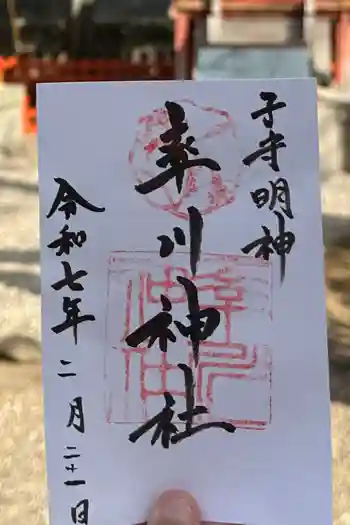 子守明神
率川神社
令和七年二月二十一日